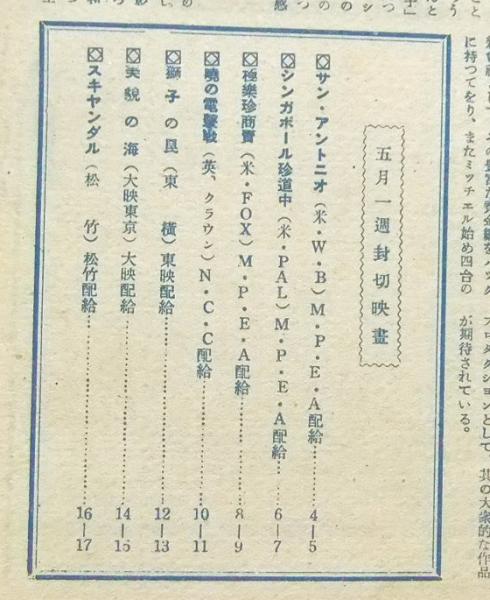 に持つてをり、またミッチエル始め四台の
が期待されている。
其の大衆的な作品
五月一週封切映畫
◇サン・アントニオ(米・W・B)M・P・E・A配給………4―5
◇シンガポール珍道中(米・PAL)M・P・E・A配給………6―7
◇極樂珍商賣(米・FOX)M・P・E・A配給………8―9
◇曉の電撃戰(英、クラウン)N・C・C配給………10―11
◇獅子の罠(東横)東映配給………12―13
◇美貌の海(大映東京)大映配給………14―15
◇スキヤンダル(松竹)松竹配給………16―17